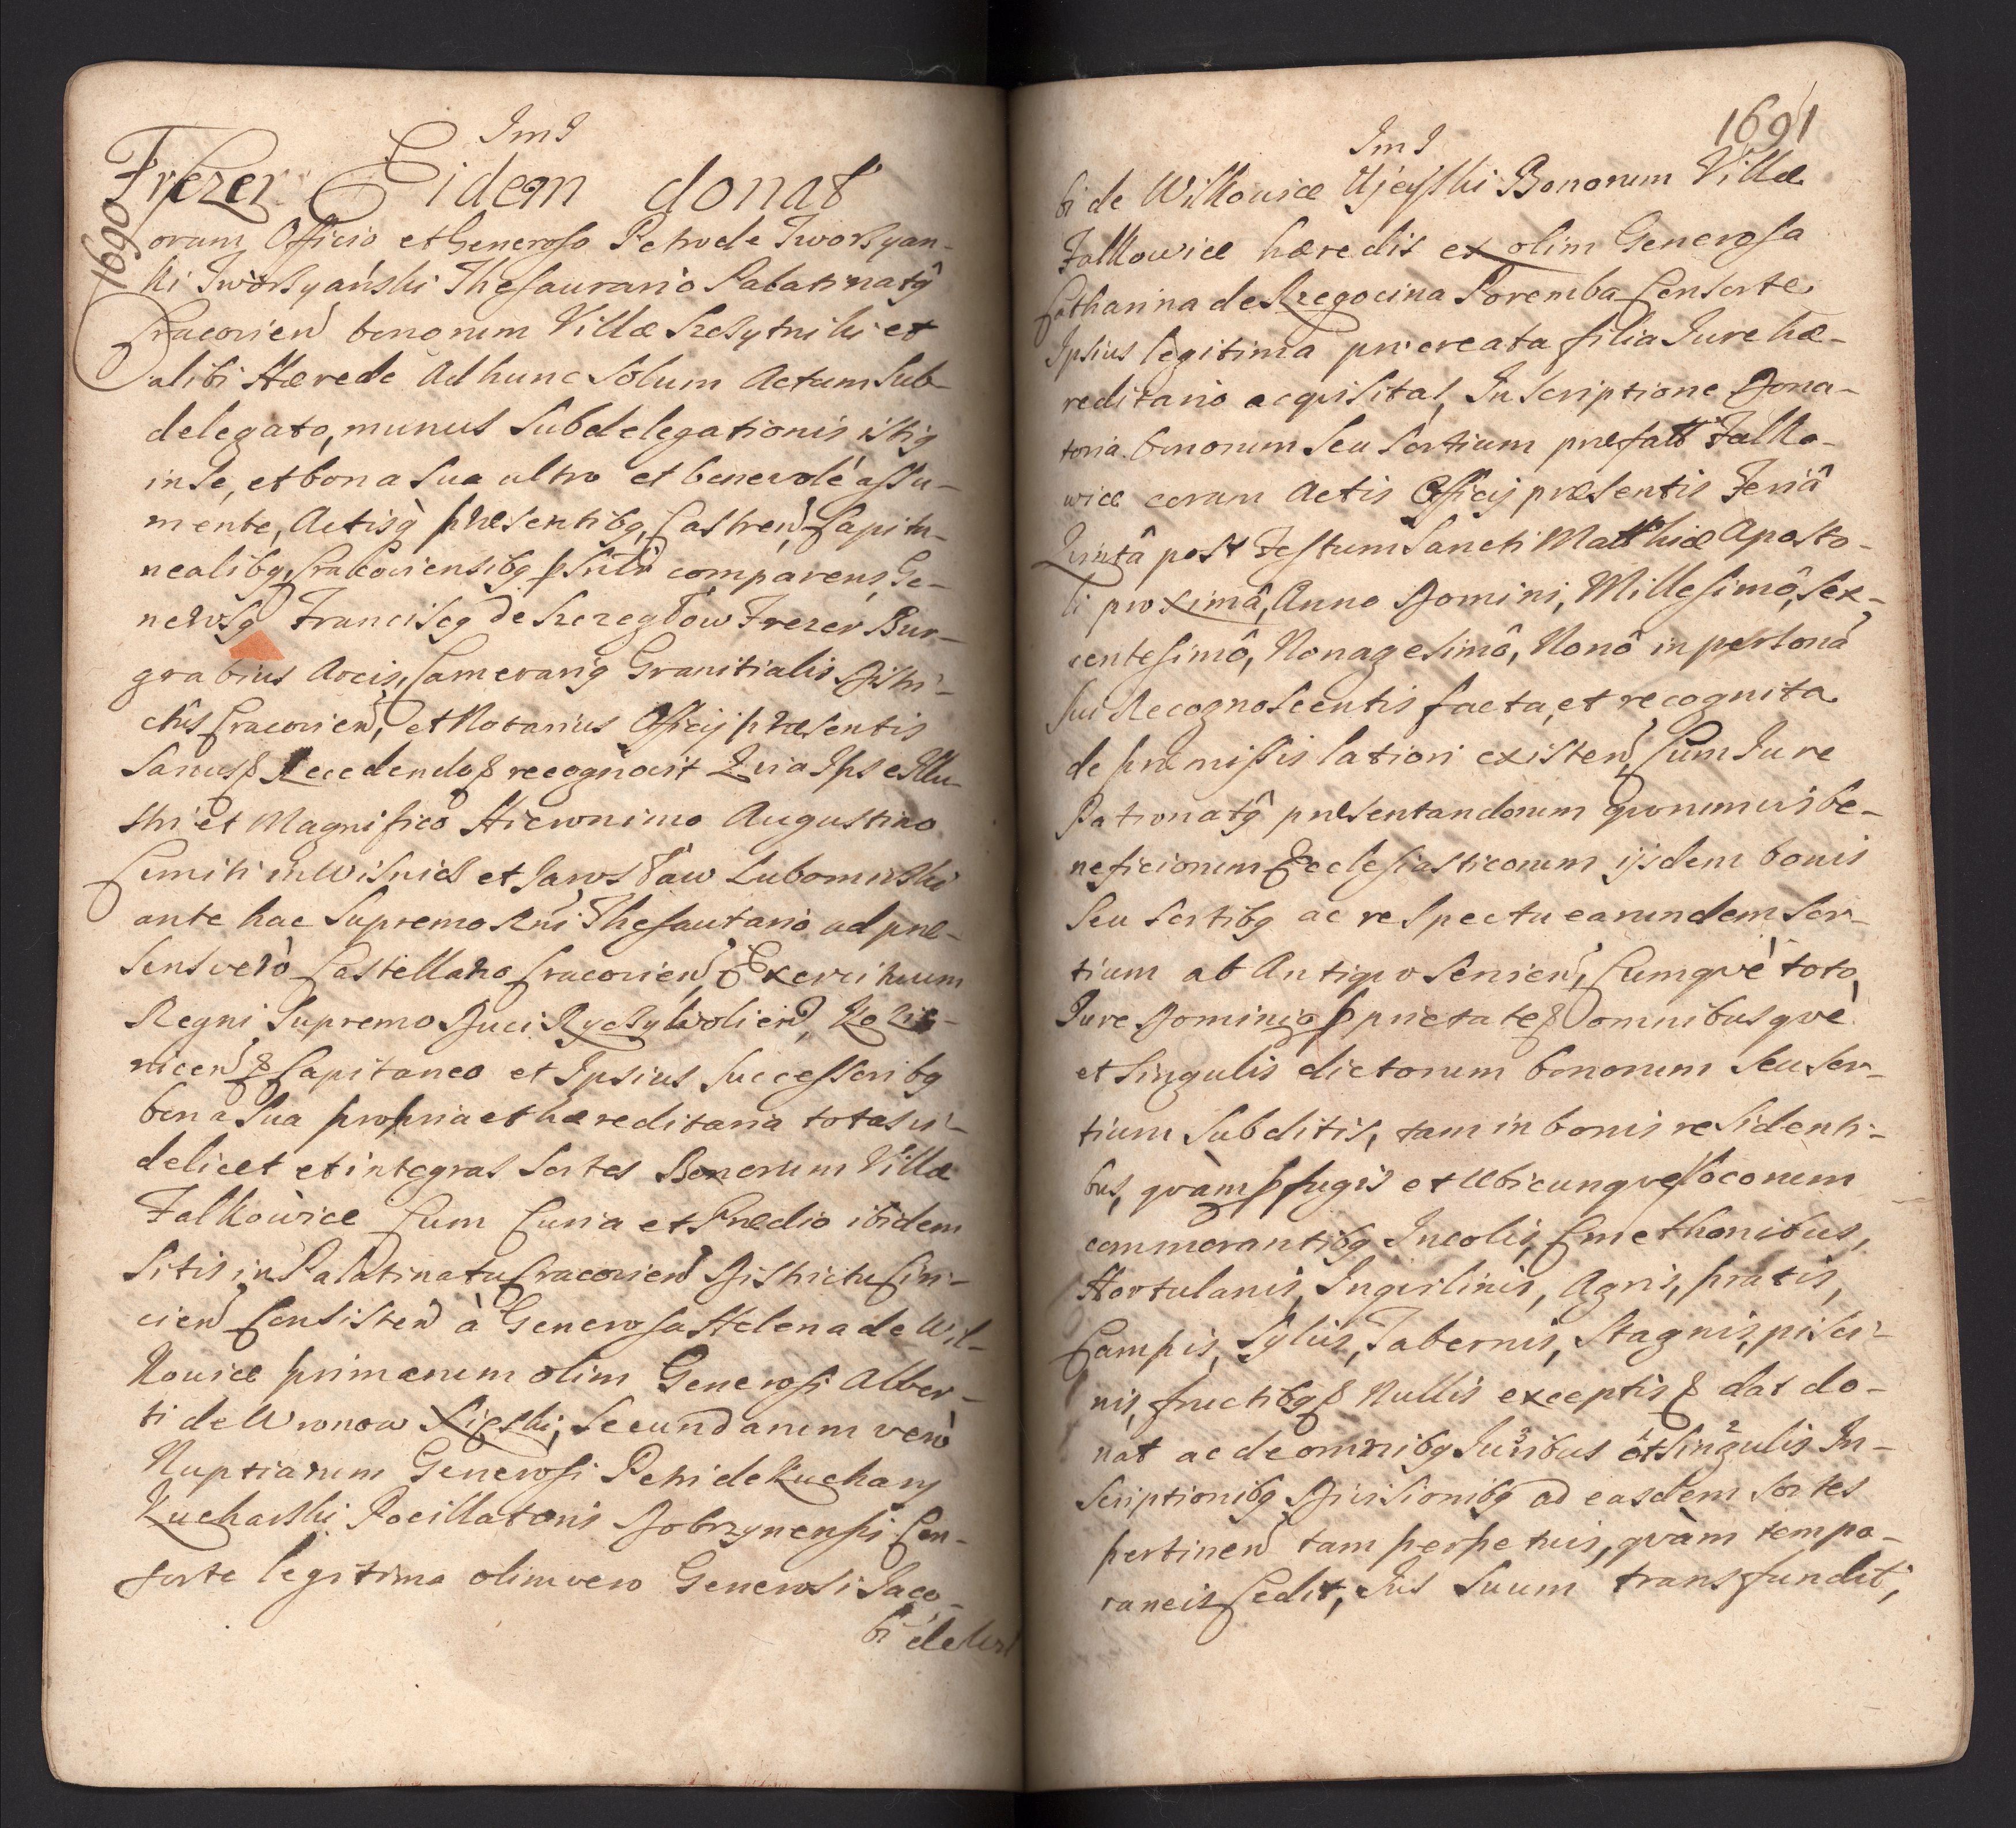 ImI
Frezer Eidem donat
1690
oram Officio et Generoso Petro de Iworzyan-
ki Iworzyański Thesaurario Palatinatq̃
Cracovien̄ bonorum Villæ Szczytniki et
alibi Hærede Ad hunc solum Actum sub-
delegato, munus subdelegationis istiq
in se, et bona sua ultro et benevolè assu-
mente, Actisq̀ præsentibq, Castren̄, Capita-
nealibq, Cracoviensibq psnlr̄ comparens, Ge-
nerosq Franciscq de Szczegłow Frezer Bur-
grabius Arcis, Camerariq Granitialis Distri-
ctûs Cracovien̄, et Notarius Officij præsentis
sanus & Recedendo & recognovit Quia Ipse Illu-
stri et Magnifico Hieronimo Augustino
Comiti in Wisnicz et Jarosław Lubomirski
ante hac Supremo Rni Thesaurario ad præ-
sens verò Castellano Cracovien̄, Exercituum
Regni Supremo Duci Ryczywolien̄, Kozie-
nicen̄ & Capitaneo et Ipsius Successoribq
bona sua propria et hæreditaria totas vi-
delicet et integras sortes Bonorum Villæ
Falkowice Cum Curia et Prædio ibidem
sitis in Palatinatu Cracovien̄ Districtu Scir-
cien̄ Consisten̄ à Generosa Helena de Wil-
kowice primarum olim Generosi Alber-
ti de Wronow Ligęski, Secundarum verò
Nuptiarum Generosi Petri de Kuchary
Kucharski Pocillatoris Dobrzynensis Con-
sorte legitima olim vero Generosi Jaco-
bi de Wil
1691
ImI
bi de Wilkowice Ujeyski Bonorum Villæ
Falkowice hæredis ex olim Generosa
Catharina de Rzegocina Poremba Consorte
Ipsius legitima procreata filia Jure hæ-
reditario acquisitas, Inscriptione Dona-
toria bonorum seu Sortium præfatt Falko-
wice coram Actis Officij præsentis Feriâ
Quintâ post Festum Sancti Matthiæ Aposto-
li proximâ, Anno Domini, Millesimô, Sex-
centesimô, Nonagesimô, Nonô in personã
sui Recognoscentis facta, et recognita
de præmissis latiori existen̄, Cum Jure
Patronatq̃ præsentandorum quorumvis be-
neficiorum Ecclesiasticorum ijsdem bonis
seu sortibq ac respectu earundem sor-
tium ab Antiquo servien̄, Cumqvè toto
Jure Dominio pprietate & omnibusqvè
et singulis dictorum bonorum seu sor-
tium Subditis, tam in bonis residenti-
bus, qvàm pfugis et Ubicunqve locorum
commorantibq Incolis, Cmethonibus,
Hortulanis, Inqvilinis, Agris, pratis,
Campis, Sylvis, Tabernis, Stagnis, pisci-
nis, fructibq & Nullis exceptis & dat do-
nat ac de omnibq Juribus et singulis In-
scriptionibq Divisionibq ad easdem sortes
pertinen̄ tam perpetuis, qvàm tempo-
raneis Cedit, Jus suum transfundit;